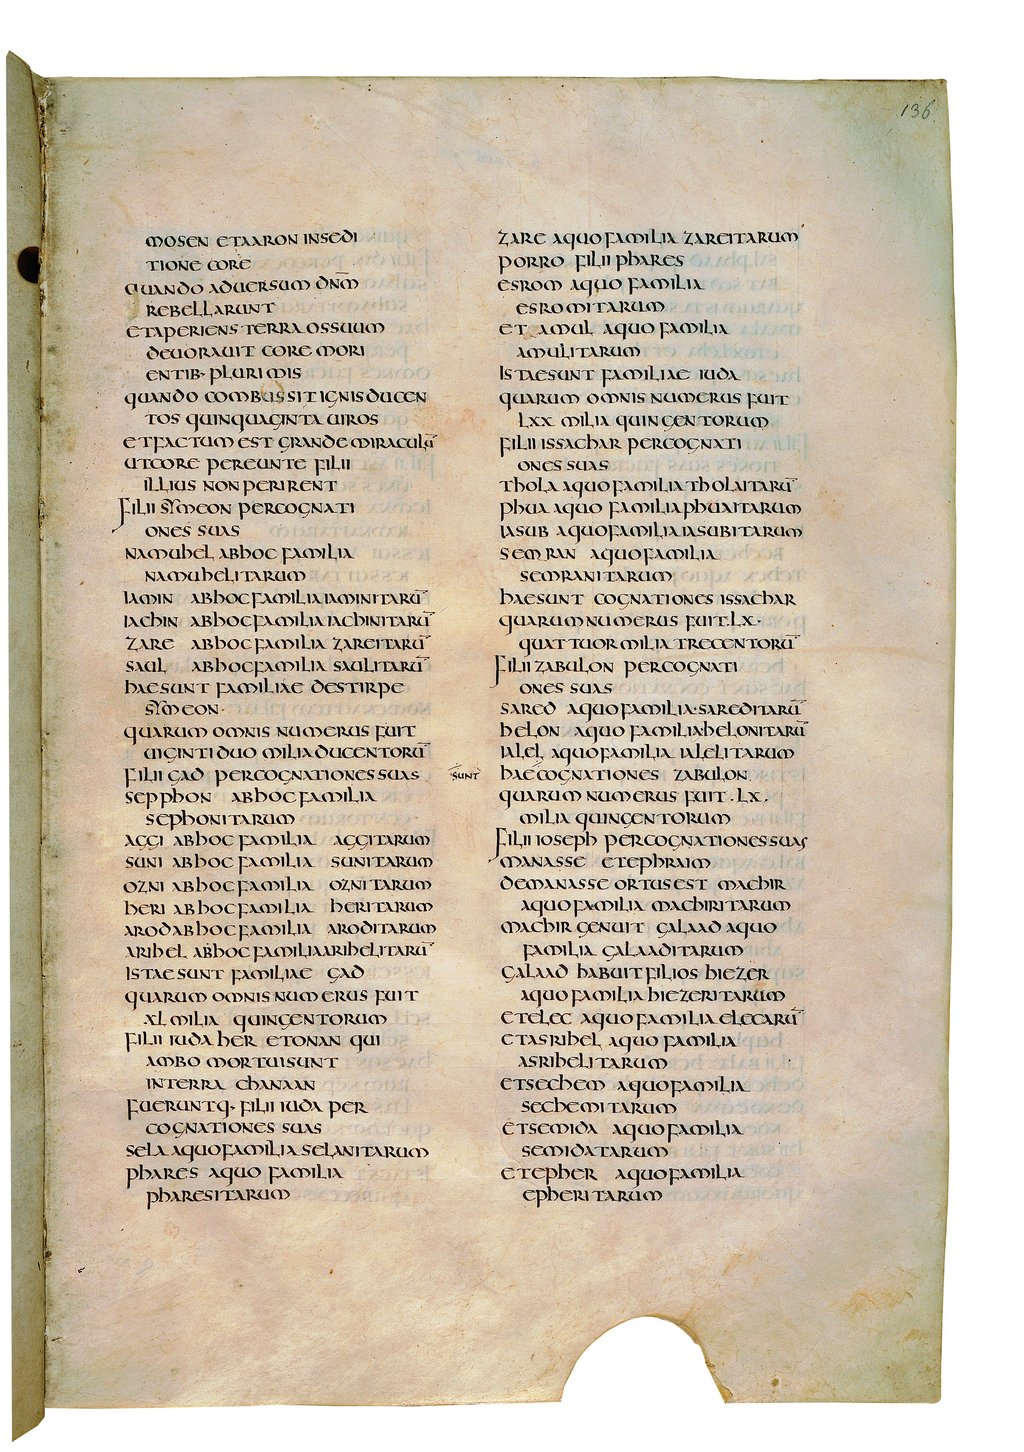 136
MOSEN ETAARON INSEDI
TIONE CORE
QUANDO ADUERSUM DN̅M
REBELLARUNT
ETAPERIENS TERRA OSSUUM
DEUORAUIT CORE MORI
ENTIB· PLURIMIS
QUANDO COMBUSSIT IGNIS DUCEN
TOS QUINQUAGINTA UIROS
ETFACTUM EST GRANDE MIRACULŪ
UTCORE PEREUNTE FILII
ILLIUS NON PERIRENT
FILII SYMEON PERCOGNATI
ONES SUAS
NAMUHEL ABHOC FAMILIA
NAMUHELITARUM
IAMIN ABHOC FAMILIA IAMINITARŪ
IACHIN ABHOC FAMILIA IACHINITARŪ
ZARE ABHOC FAMILIA ZAREITARŪ
SAUL ABHOC FAMILIA SAULITARŪ
HAESUNT FAMILIAE DESTIRPE
SYMEON·
QUARUM OMNIS NUMERUS FUIT
UIGINTI DUO MILIA DUCENTORŪ
FILII GAD PERCOGNATIONES SUAS
SEPPHON ABHOC FAMILIA
SEPHONITARUM
AGGI ABHOC FAMILIA AGGITARUM
SUNI ABHOC FAMILIA SUNITARUM
OZNI ABHOC FAMILIA OZNITARUM
HERI ABHOC FAMILIA HERITARUM
AROD ABHOC FAMILIA ARODITARUM
ARIHEL ABHOC FAMILIA ARIHELITARŪ
ISTAESUNT FAMILIAE GAD
QUARUM OMNIS NUMERUS FUIT
XL MILIA QUINGENTORUM
FILII IUDA HER ETONAN QUI
AMBO MORTUI SUNT
INTERRA CHANAAN
FUERUNTQ· FILII IUDA PER
COGNATIONES SUAS
SELA AQUO FAMILIA SELANITARUM
PHARES AQUO FAMILIA
PHARESITARUM
ZARE AQUO FAMILIA ZAREITARUM
PORRO FILII PHARES
ESROM AQUO FAMILIA
ESROMITARUM
ET AMUL AQUO FAMILIA
AMULITARUM
ISTAESUNT FAMILIAE IUDA
QUARUM OMNIS NUMERUS FUIT
LXX MILIA QUINGENTORUM
FILII ISSACHAR PERCOGNATI
ONES SUAS
THOLA AQUO FAMILIA THOLAITARŪ
PHUA AQUO FAMILIA PHUAITARUM
IASUB AQUO FAMILIA IASUBITARUM
SEMRAN AQUO FAMILIA
SEMRANITARUM
HAESUNT COGNATIONES ISSACHAR
QUARUM NUMERUS FUIT·LX·
QUATTUOR MILIA TRECENTORŪ
FILII ZABULON PERCOGNATI
ONES SUAS
SARED AQUO FAMILIA·SAREDITARŪ
HELON AQUO FAMILIA HELONITARŪ
IALEL AQUO FAMILIA IALELITARUM
SUNT HAE COGNATIONES ZABULON
QUARUM NUMERUS FUIT·LX·
MILIA QUINGENTORUM
FILII IOSEPH PERCOGNATIONES SUAS
MANASSE ETEPHRAIM
DEMANASSE ORTUS EST MACHIR
AQUO FAMILIA MACHIRITARUM
MACHIR GENUIT GALAAD AQUO
FAMILIA GALAADITARUM
GALAAD HABUIT FILIOS HIEZER
AQUO FAMILIA HIEZERITARUM
ETELEC AQUO FAMILIA ELECARŪ
ETASRIHEL AQUO FAMILIA
ASRIHELITARUM
ETSECHEM AQUO FAMILIA
SECHEMITARUM
ETSEMIDA AQUO FAMILIA
SEMIDATARUM
ETEPHER AQUO FAMILIA
EPHERITARUM